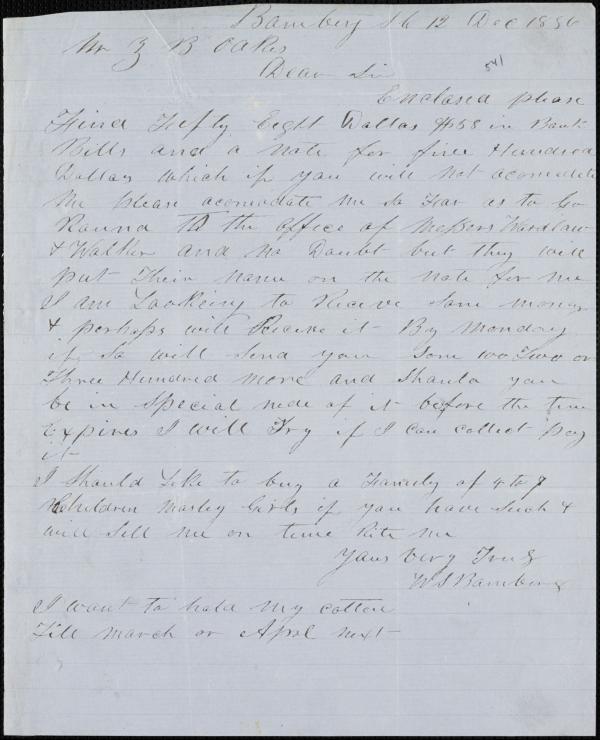 Bamberg SC 12 Dec 1856
Mr Z B Oakes
Dear Sir
541
Enclosed please
Find Fifty Eight Dollas $58 in Bank
Bills and a note for five Hundred
Dollars which if you will not acomodate
me please acomodate me so Far as to Go
Round To the office of Messers Wardlaw
& Walker and no Doubt but they will
put Their name on the note for me
I am Lookeing to Receve some money
& perhaps will Receive it By Monday
if So will send you Some Two or
Three Hundred more and Should you
be in Special nede of it before the time
Expires I will Try if I can collect pay
it
I Should Like to buy a Family of 4 to 7
Children Mostly Girls if you have Such &
will Sell me on time Rite me
Yours Very Truly
W S Bamberg
I want to hold my cotton
Till march or Aprl next